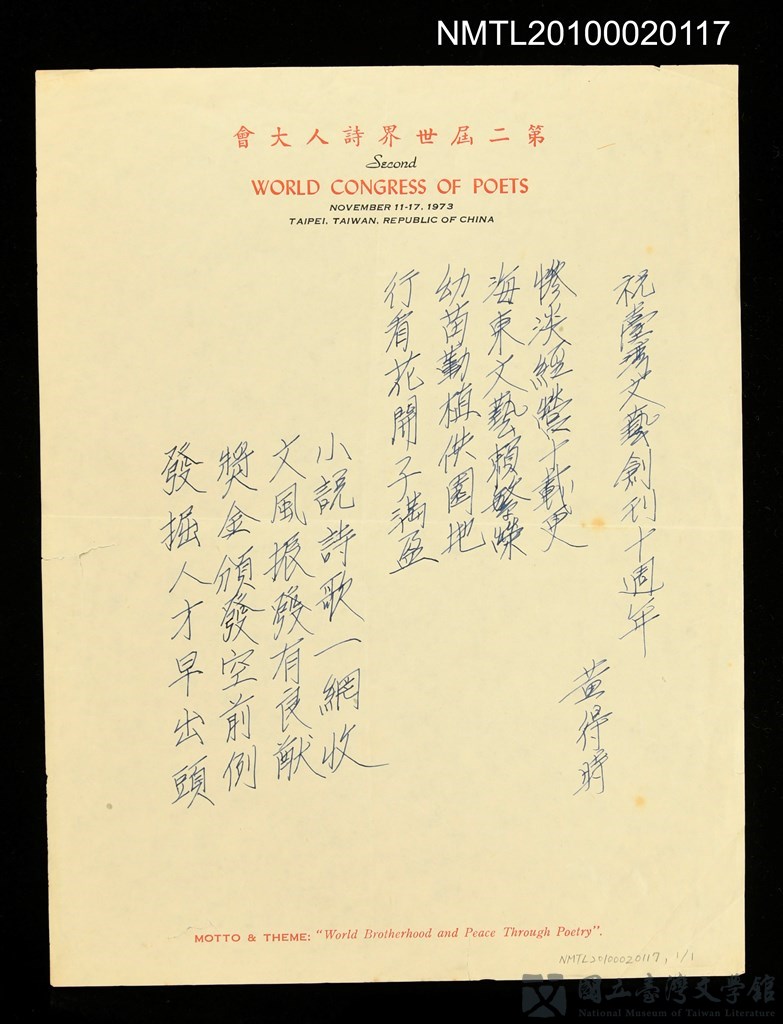 NMTL20100020117
會大人詩界世屆二第
Second
WORLD CONGRESS OF POETS
NOVEMBER 11-17, 1973
TAIPEI, TAIWAN, REPUBLIC OF CHINA
祝臺灣文藝創刊十週年
黃得時
慘淡經營十載更
海東文藝賴繁榮
幼苗勤植供園地
行看花開子滿盈
小說詩歌一網收
文風振發有良猷
獎金頒發空前例
發掘人才早出頭
MOTTO & THEME: "World Brotherhood and Peace Through Poetry".
NMTL20100020117, 1/1
國立臺灣文學館
National Museum of Taiwan Literature